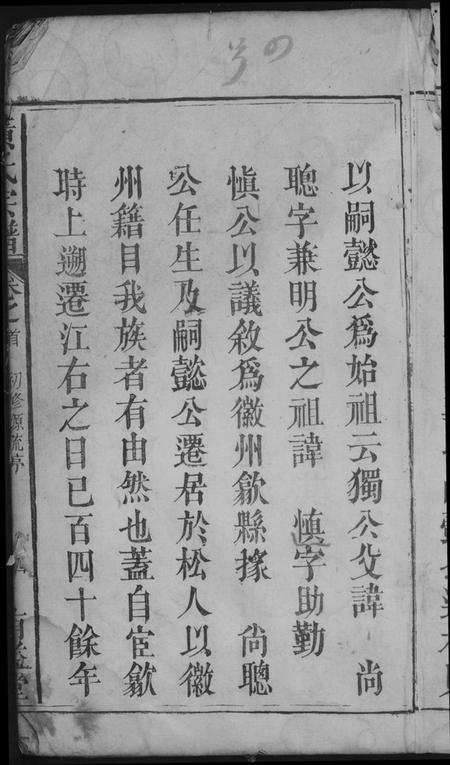 以嗣懿公爲始祖云獨公父諱　尚
聰字兼明公之祖諱　慎字助勤
慎公以議敘爲徽州歙縣掾　尚聰
公任生及嗣懿公遷居於松人以徽
州籍目我族者有由然也蓋自宦歙
時上遡遷江右之日已百四十餘年
黃氏宗譜
卷之首　初修源流序